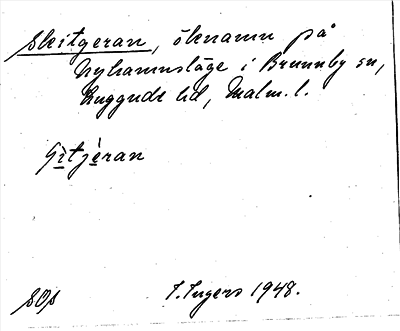 Skitgeran, öknamn på
Nyhamnsläge i Brunnby sn,
Luggude hd, Malm. l.
sOs
I. Ingers 1948.